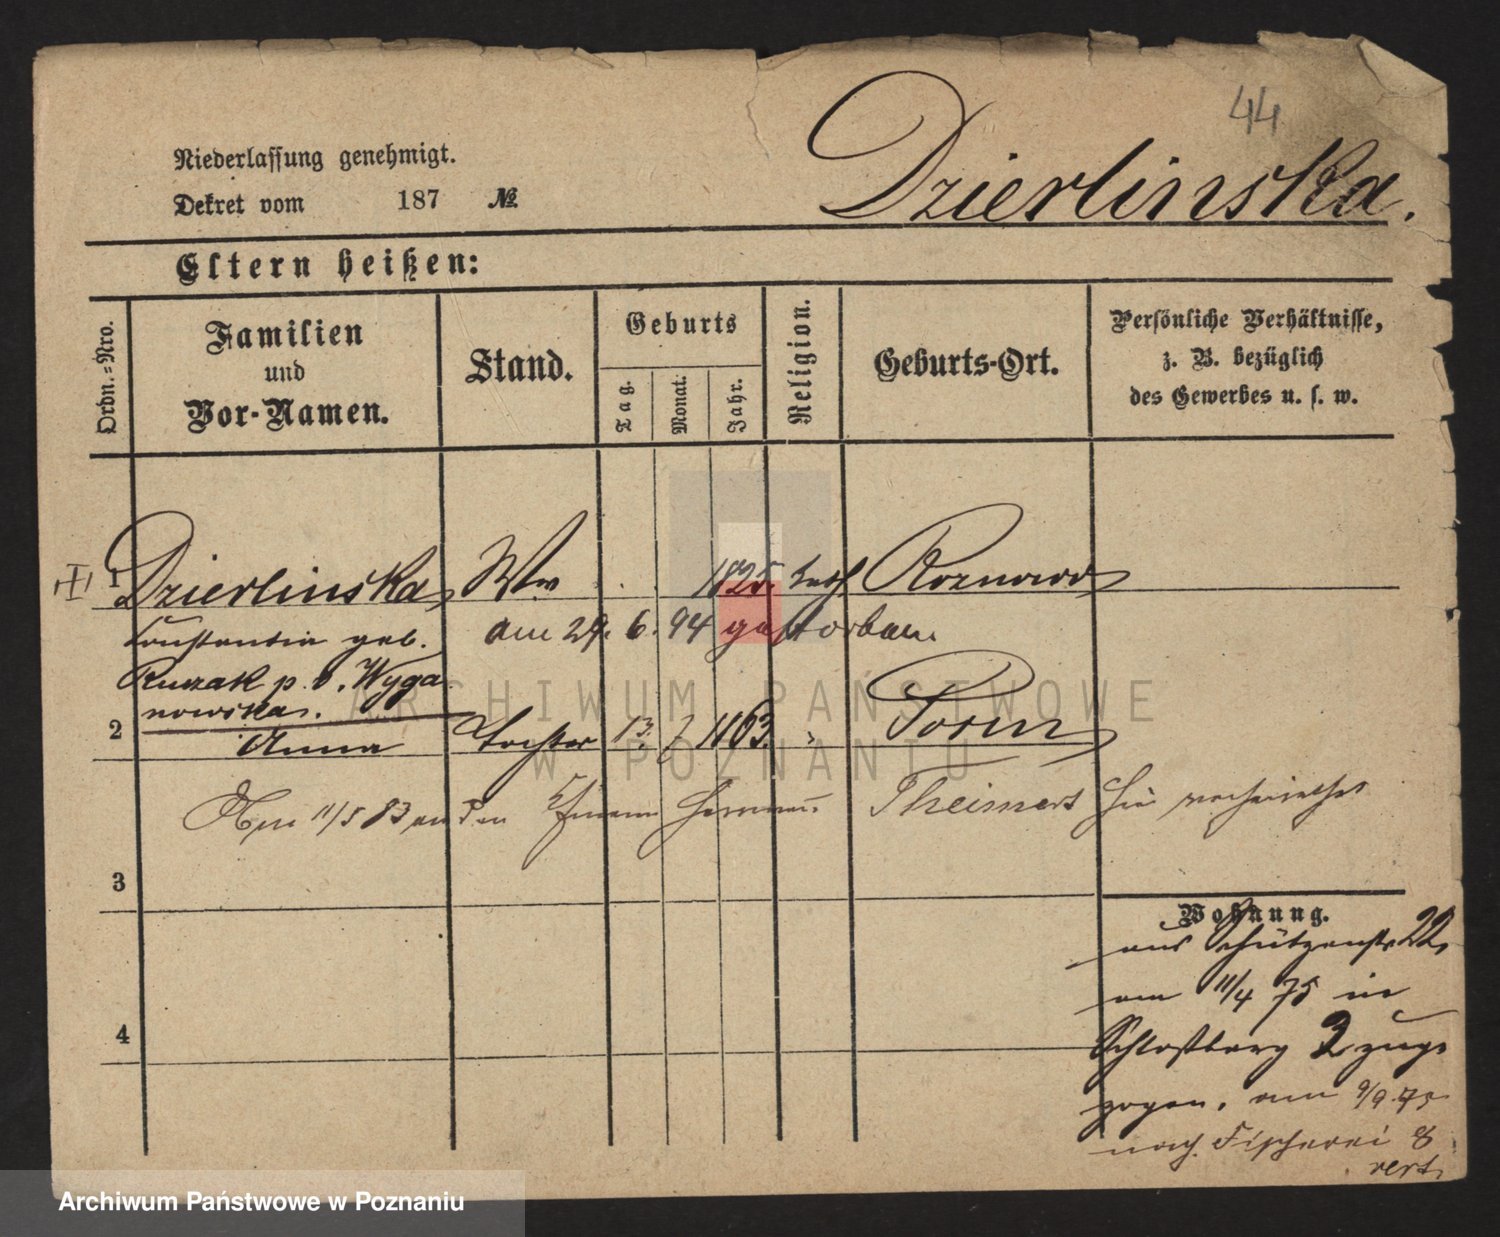 44
Niederlassung genehmigt.
Dekret vom 187 №
Dzierlinska.
Eltern heißen:
Ordn.=Nro.
Familien
und
Vor-Namen.
Stand.
Geburts
Tag.
Monat.
Jahr.
Religion.
Geburts-Ort.
Persönliche Verhältnisse,
z. B. bezüglich
des Gewerbes u. s. w.
1 Dzierlinska, Ww 1825. kath Roznowo
Constantia geb. am 29. 6. 94 gestorben.
Ruzak p. v. Wyga
nowska.
2 Anna Tochter 13. 7 1863. " Posen
Am 11/5 83 an den Hermann Theimert hier verheirathet
3
4
Wohnung.
aus Schützenstr 22,
am 11/4 75 in
Schloßberg 2 zuge
zogen, am 9/9.75
nach Fischerei 8
vert.
ARCHIWUM PAŃSTWOWE
W POZNANIU
Archiwum Państwowe w Poznaniu